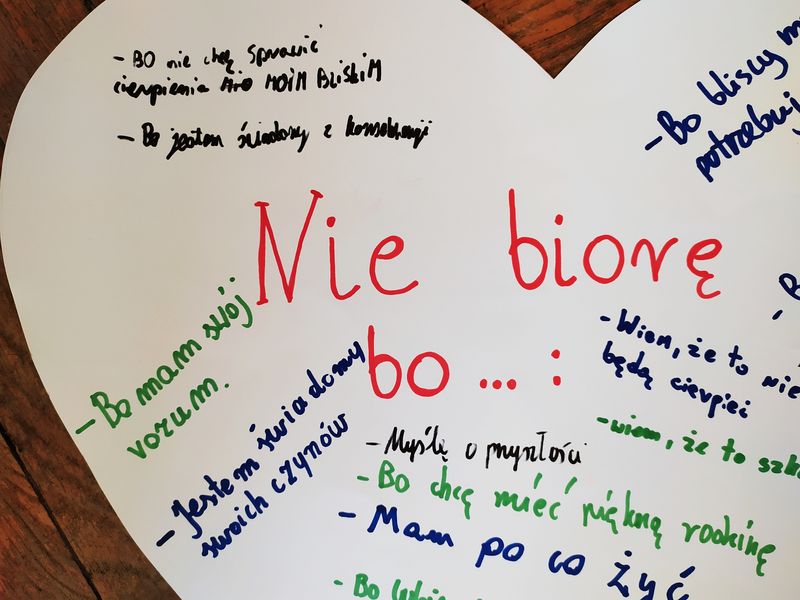 - BO nie chcę sprawić
cierpienia MOIM BLISKIM
- Bo jestem świadomy z konsekwencji
- Bo bliscy m
potrzebuj
Nie biorę
bo ... :
- Bo mam swój
rozum.
- Jestem świadomy
swoich czynów
- B
- Wiem, że to nie
będą cierpieć
- wiem, że to szko
- Myślę o przyszłości
- Bo chcę mieć piękną rodzinę
- Mam po co żyć
- Bo